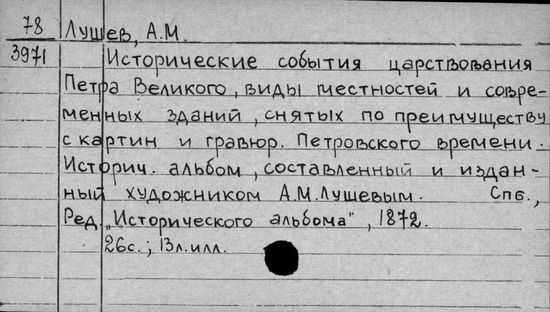 78 Лушев, А.М.
3971 Исторические события царствования
Петра Великого, виды местностей и совре-
менных зданий, снятых по преимуществу
с картин и гравюр. Петровского времени.
Историч. альбом, составленный и издан-
ный художником А.М.Лушевым. Спб.,
Ред. „Исторического альбома", 1872.
26с.; 13л.илл.